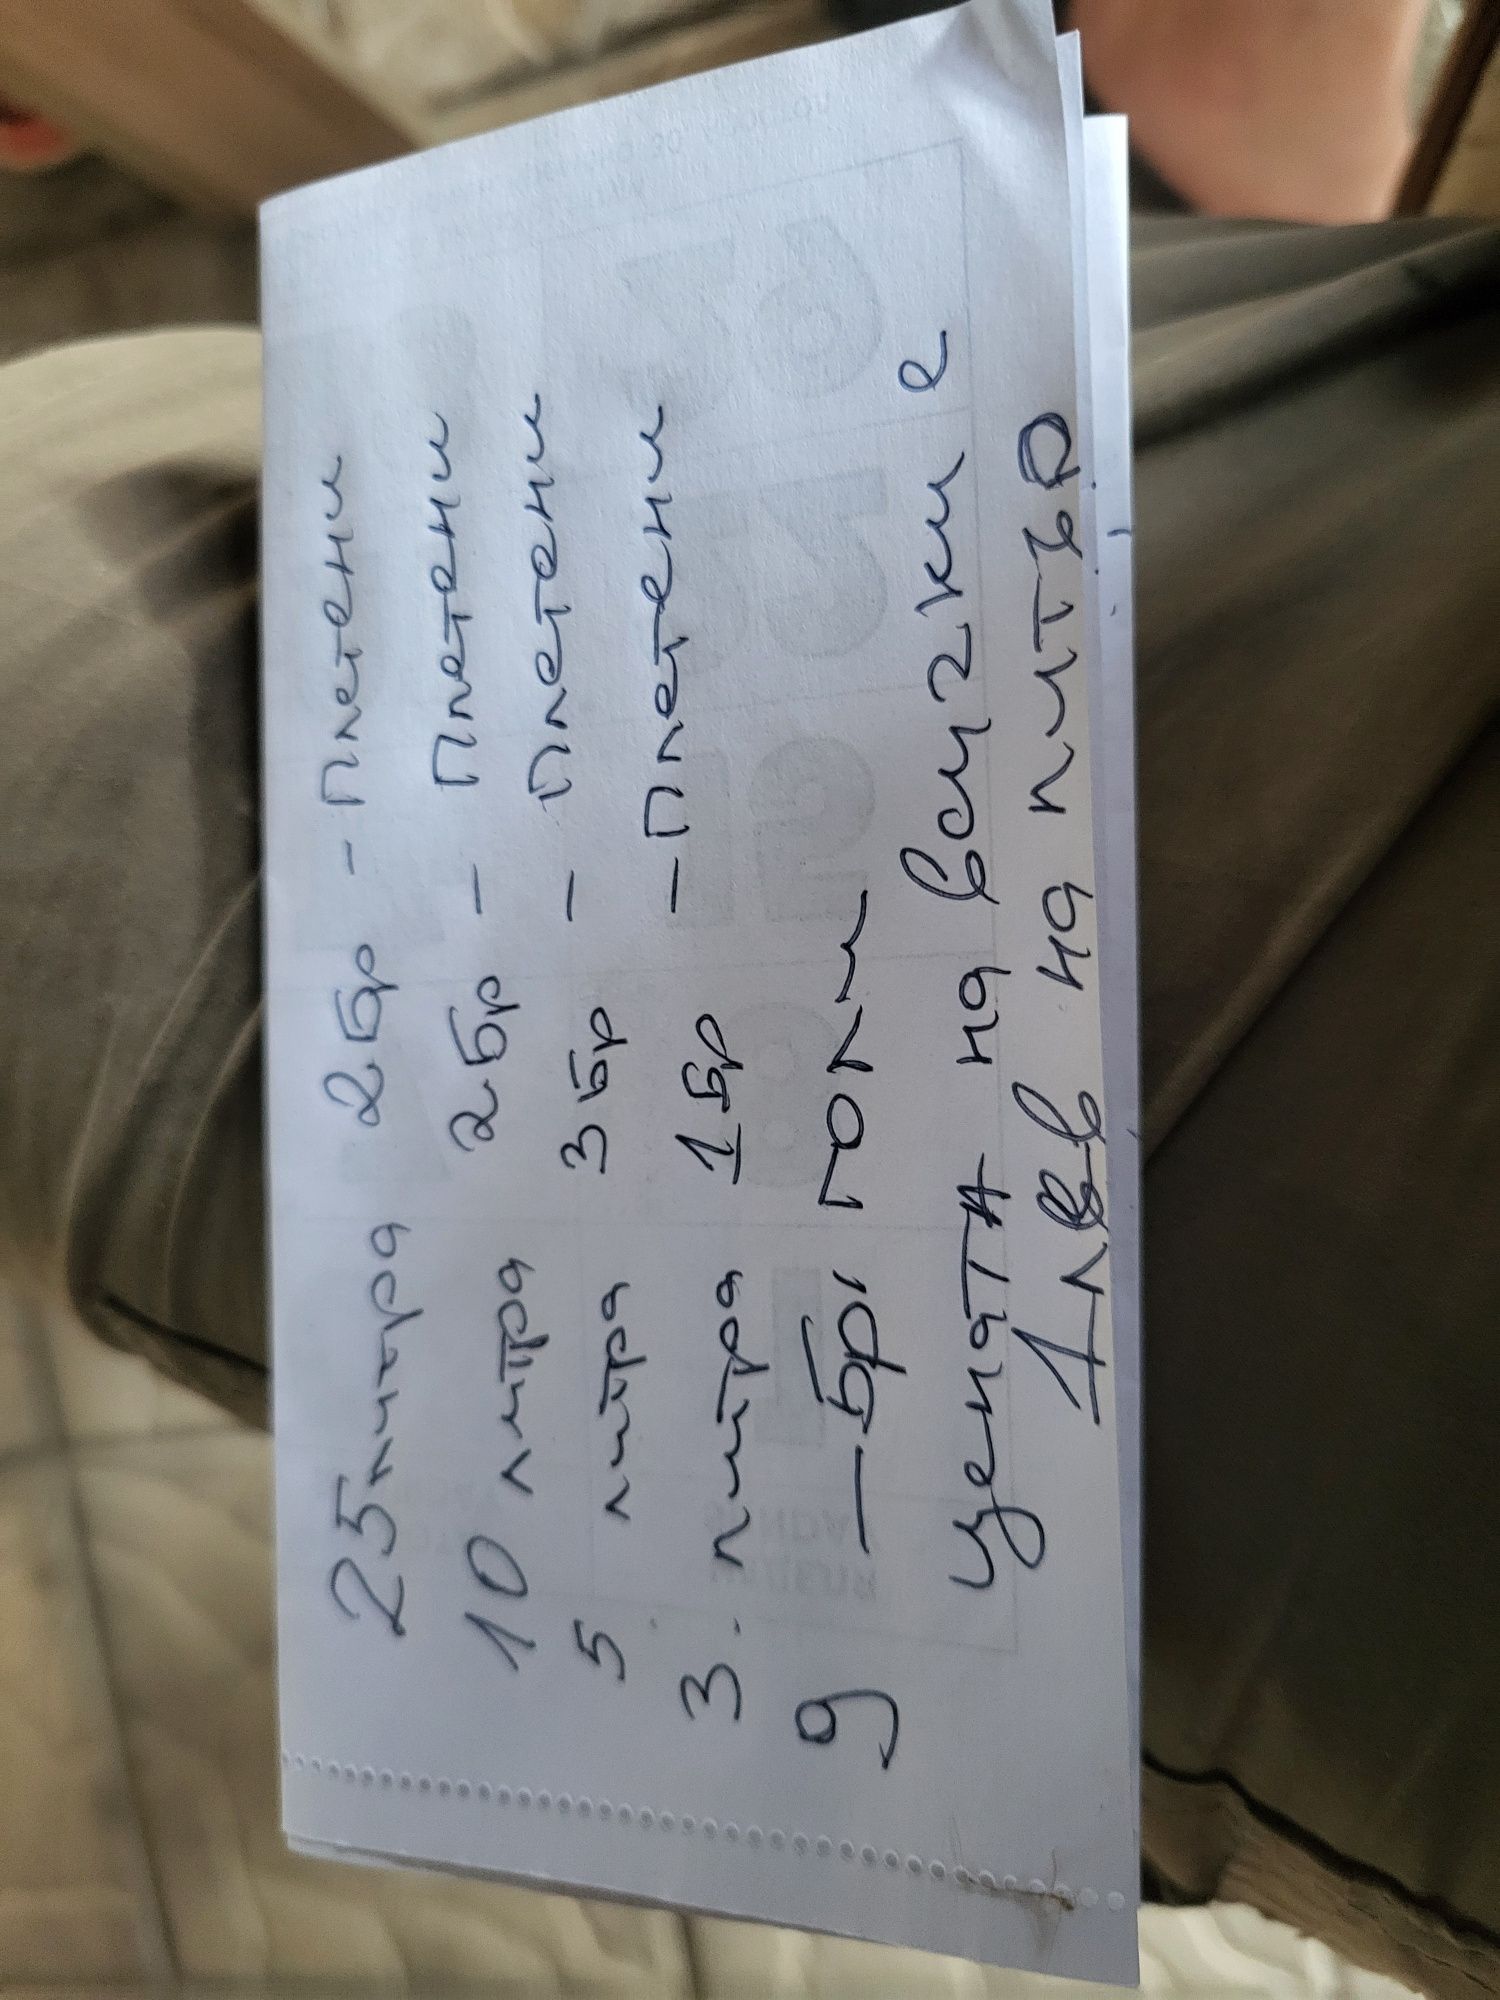 25 литра 2бр - Плетени
10 литра 2бр - Плетени
5 литра 3бр - Плетени
3. литра 1бр - Плетени
9 - Бр. голи
цената на всички е
1лв на литър